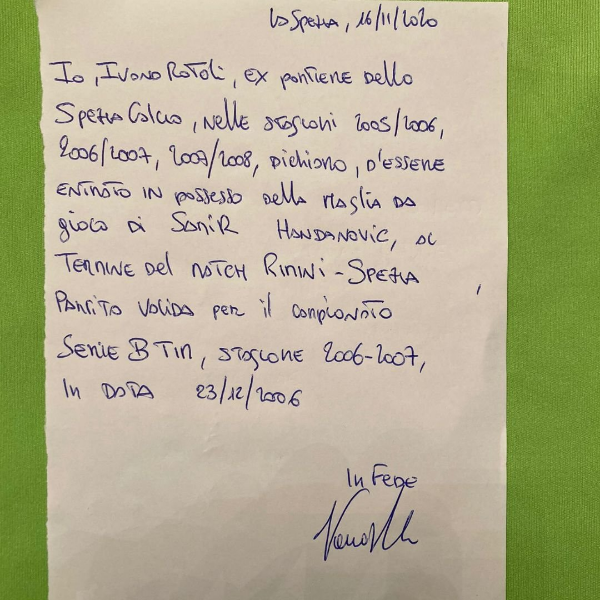 La Spezia, 16/11/2020
Io, Ivano Rotoli, ex portiere dello
Spezia Calcio, nelle stagioni 2005/2006,
2006/2007, 2007/2008, dichiaro, d'essere
entrato in possesso della maglia da
gioco di Samir Handanovic, al
termine del match Rimini-Spezia
Partita valida per il campionato
Serie B Tim, stagione 2006-2007,
in data 23/12/2006
In Fede